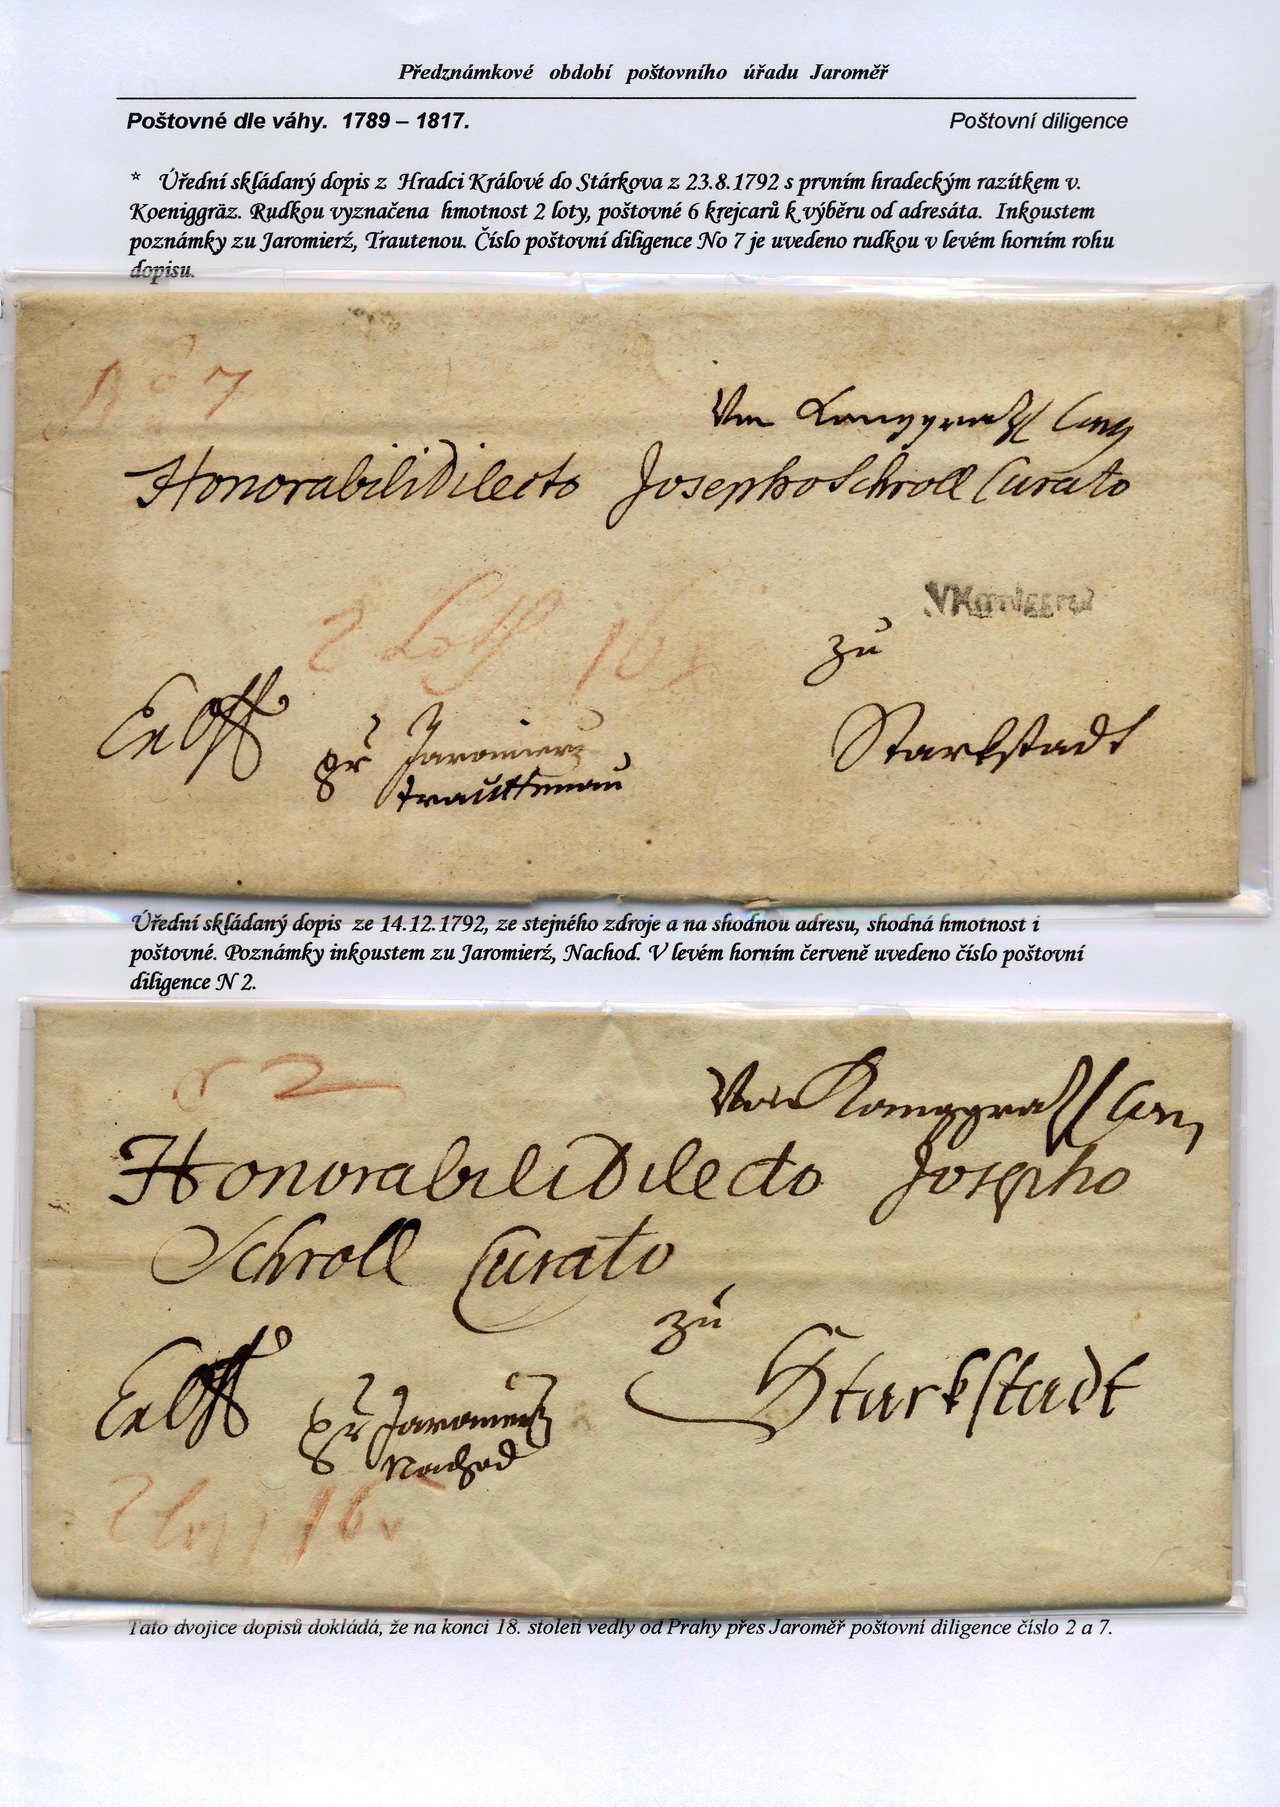 Předznámkové období poštovního úřadu Jaroměř
Poštovné dle váhy. 1789 – 1817.
Poštovní diligence
* Úřední skládaný dopis z Hradci Králové do Stárkova z 23.8.1792 s prvním hradeckým razítkem v.
Koeniggräz. Rudkou vyznačena hmotnost 2 loty, poštovné 6 krejcarů k výběru od adresáta. Inkoustem
poznámky zu Jaromierź, Trautenou. Číslo poštovní diligence No 7 je uvedeno rudkou v levém horním rohu
dopisu.
No 7
Honorabili Dilecto Josepho Schroll Curato
2 Loth
zu
pr Jaromierz
Trauttenau
Starkstadt
Úřední skládaný dopis ze 14.12.1792, ze stejného zdroje a na shodnou adresu, shodná hmotnost i
poštovné. Poznámky inkoustem zu Jaromierź, Nachod. V levém horním červeně uvedeno číslo poštovní
diligence N 2.
2
Honorabili Dilecto Josepho
Schroll Curato
zu
Starkstadt
pr Jaromierz
Nachod
Tato dvojice dopisů dokládá, že na konci 18. století vedly od Prahy přes Jaroměř poštovní diligence číslo 2 a 7.